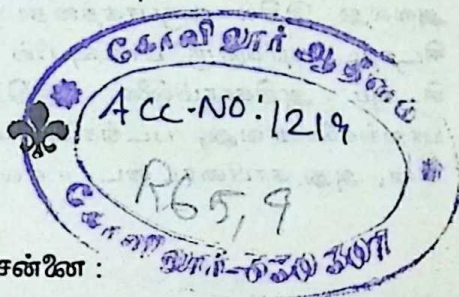 கோவிலூர் ஆதீனம்
ACC-NO: 1219
R65,9
கோவிலூர்-630 307
சென்னை :